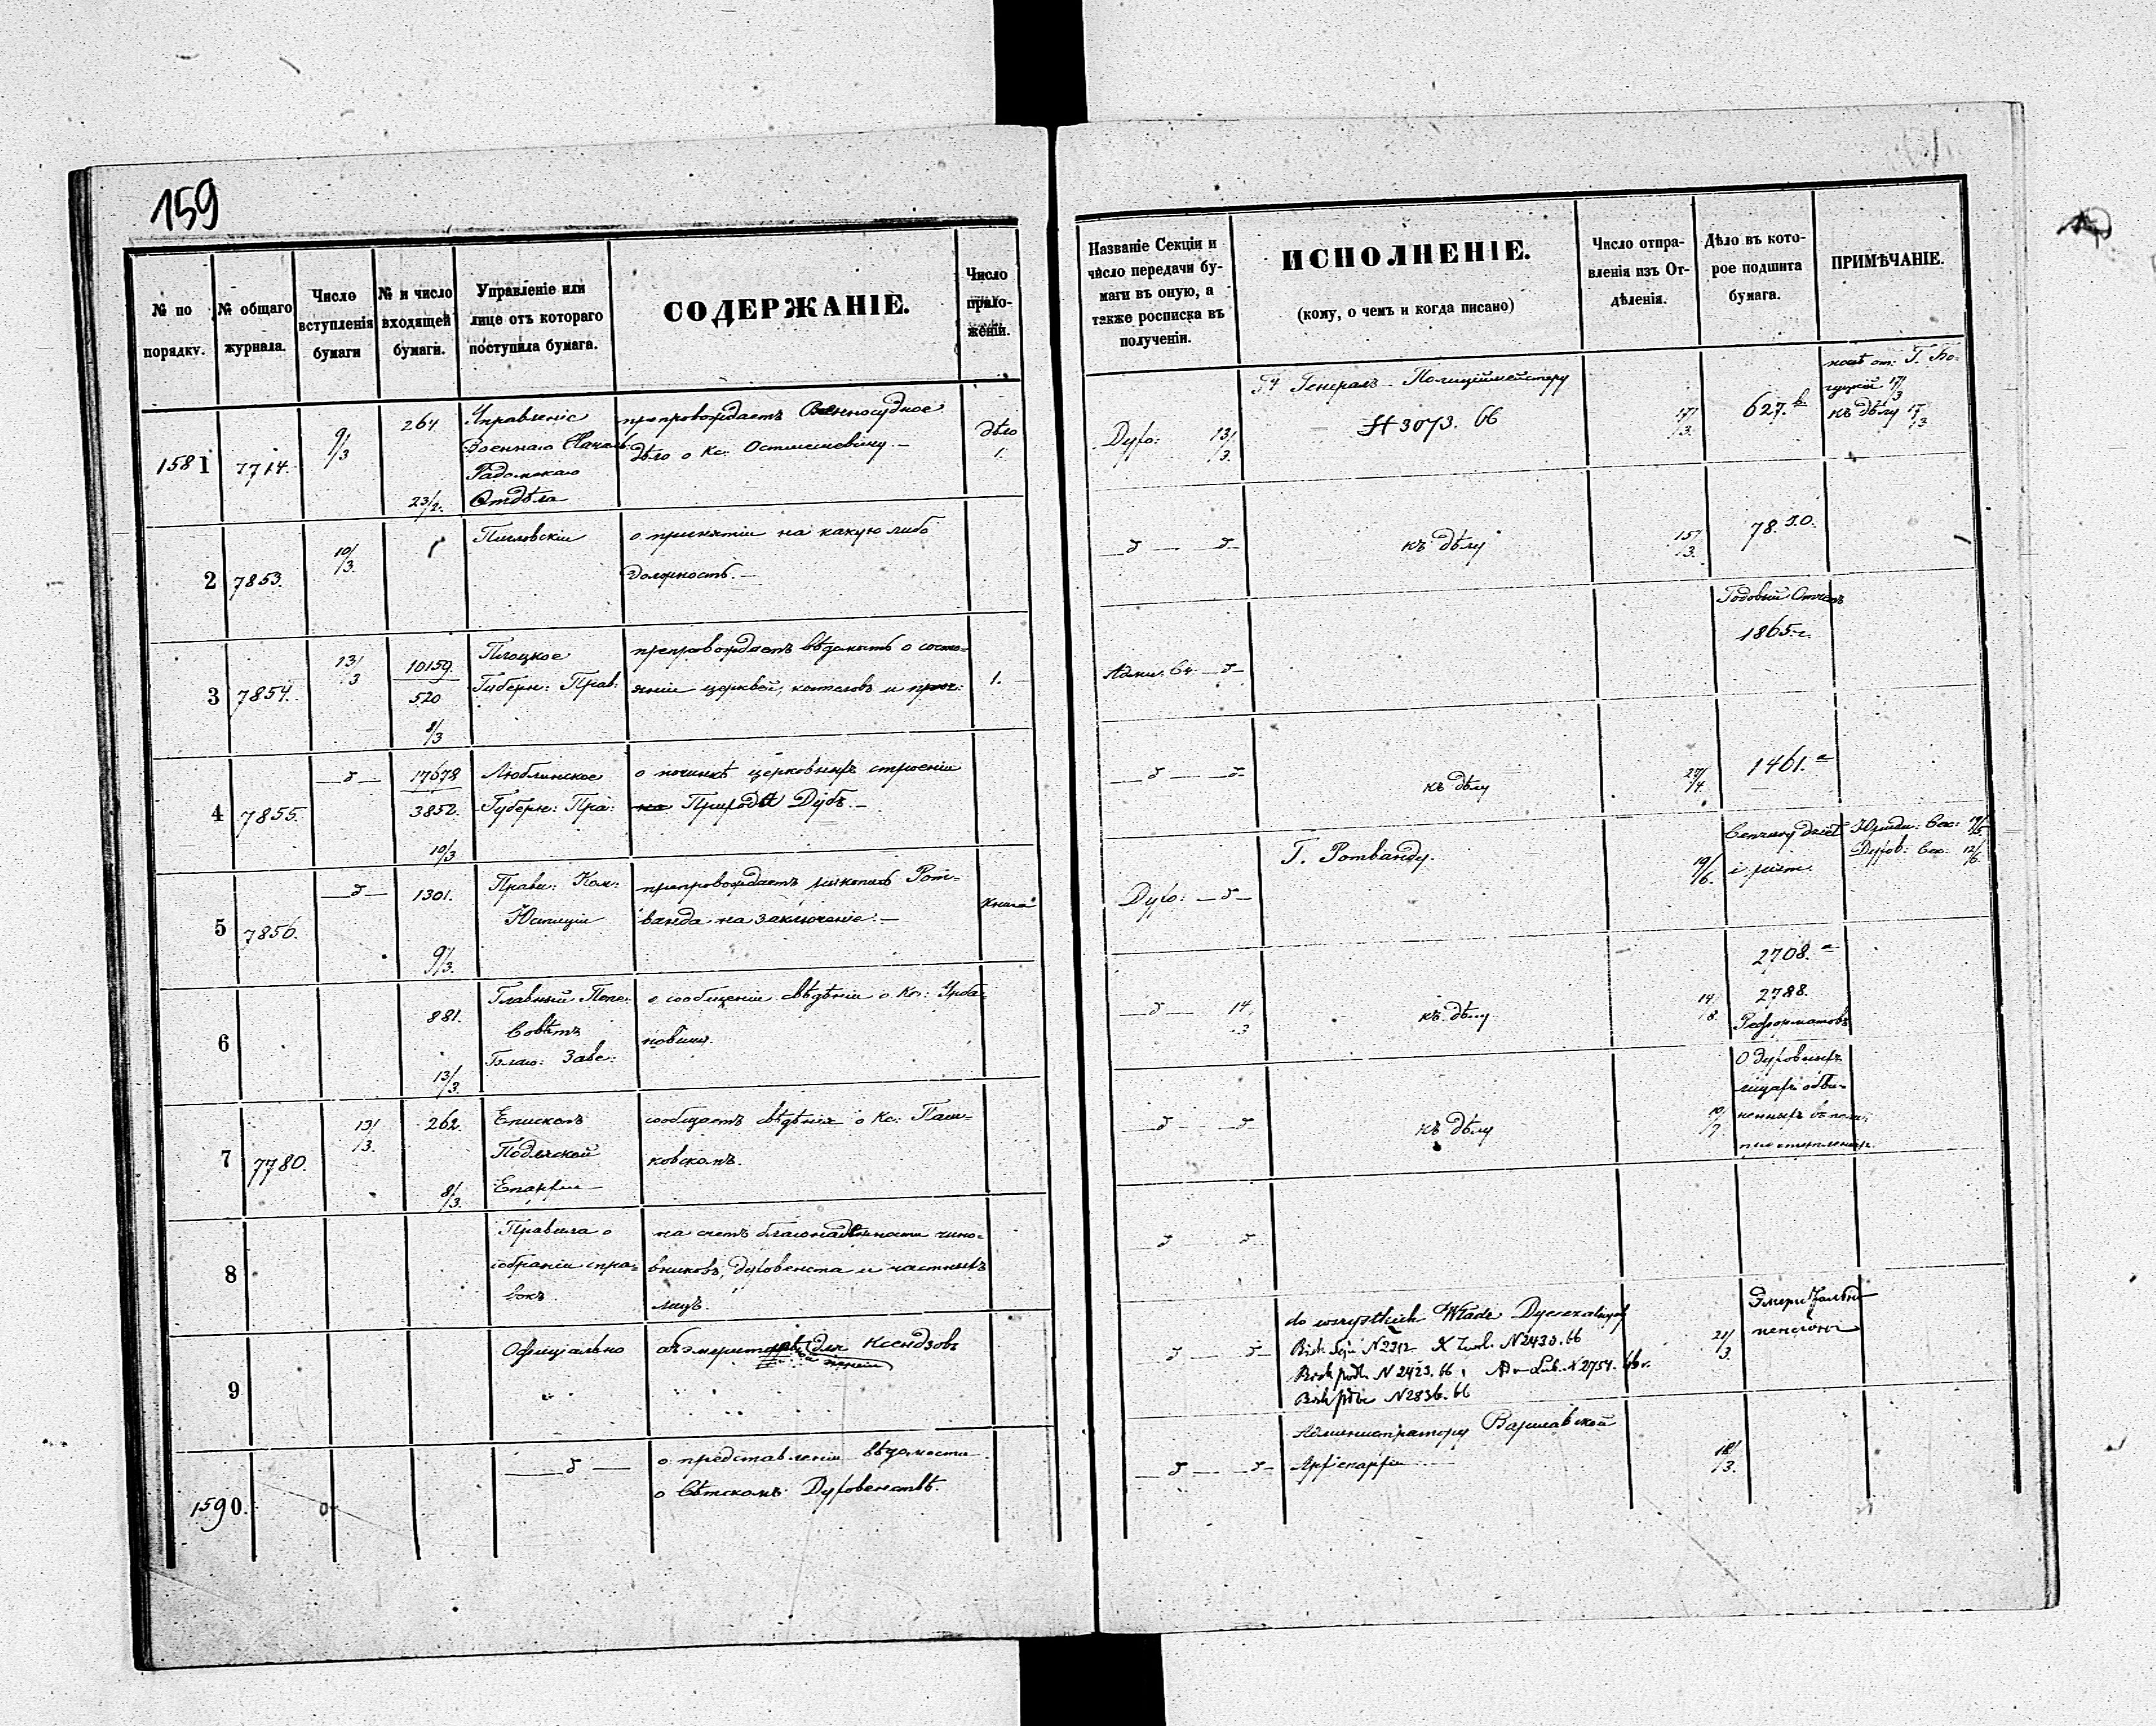 159
№ по порядку.
№ общаго журнала.
Число вступленія бумаги
№ и число входящей бумаги.
Управленіе или лице отъ котораго поступила бумага.
СОДЕРЖАНІЕ.
Число приложеній.
Названіе Секціи и число передачи бумаги въ оную, а также росписка въ полученіи.
ИСПОЛНЕНІЕ.
(кому, о чемъ и когда писано)
Число отправленія изъ Отдѣленія.
Дѣло въ которое подшита бумага.
ПРИМѢЧАНІЕ.
1581
7714.
9/3
264
23/2.
Управленіе
Военнаго Началь.
Радомскаго
Отдѣла
препровождаетъ Военносудное
дѣло о Кс.
дѣло
1.
Духо:
13/3.
Генералъ-Полиціймейстеру
N 3073. 66
17/3.
627.
къ дѣлу 17/3
2
7853.
10/3.
о принятіи на какую либо
должность.—
къ дѣлу
15/3.
78.
3
7854.
13/3
10159
520
8/3
Плоцкое
Губерн: Прав:
препровождаетъ вѣдомость о состо=
яніи церквей, костеловъ и проч:
1.
Годовый Отчетъ
1865 г.
4
7855.
17678
3852.
10/3
Люблинское
Губерн: Пра:
о починкѣ церковныхъ строеній
Дубъ.—
къ дѣлу
27/4.
1461. а
5
7856.
1301.
9/3.
Прави: Ком:
Юстиціи
препровождаетъ рукопись Рот=
ванда на заключеніе.—
книга
Духо:
Г. Ротванду.
19/6.
Cenzury dzieł
i pism.
Юриди: Сек:
Духов: Сек: 12/6
6
881.
13/3.
Главный Попе:
Совѣтъ
Благо: Заве:
о сообщеніи свѣдѣній о Кс: Урба=
новичѣ.
14/3
къ дѣлу
14/8.
2708. а
2788.
Реформатовъ
7
7780.
13/3.
262.
8/3.
Епископъ
Подляской
Епархіи
сообщаетъ свѣдѣнія о Кс: Паш=
ковскомъ.
къ дѣлу
10/7
О духовныхъ
лицахъ обви=
ненныхъ въ поли:
преступленіяхъ
8
Правила о
собраніи спра=
вокъ.
на счетъ благонадежности чино=
вниковъ, духовенста и частныхъ
лицъ.
9
Офиціально
для Ксендзовъ
do wszystkich Władz Dyecezalnych
N 2312 N 2430. 66
N 2423. 66 N 2754. 66 r.
N 2836. 66
21/3.
Эмеритальные
пенсіоны
1590.
о представленіи вѣдомости
о Свѣтскомъ Духовенствѣ.
Администратору Варшавской
Архіепархіи
18/3.